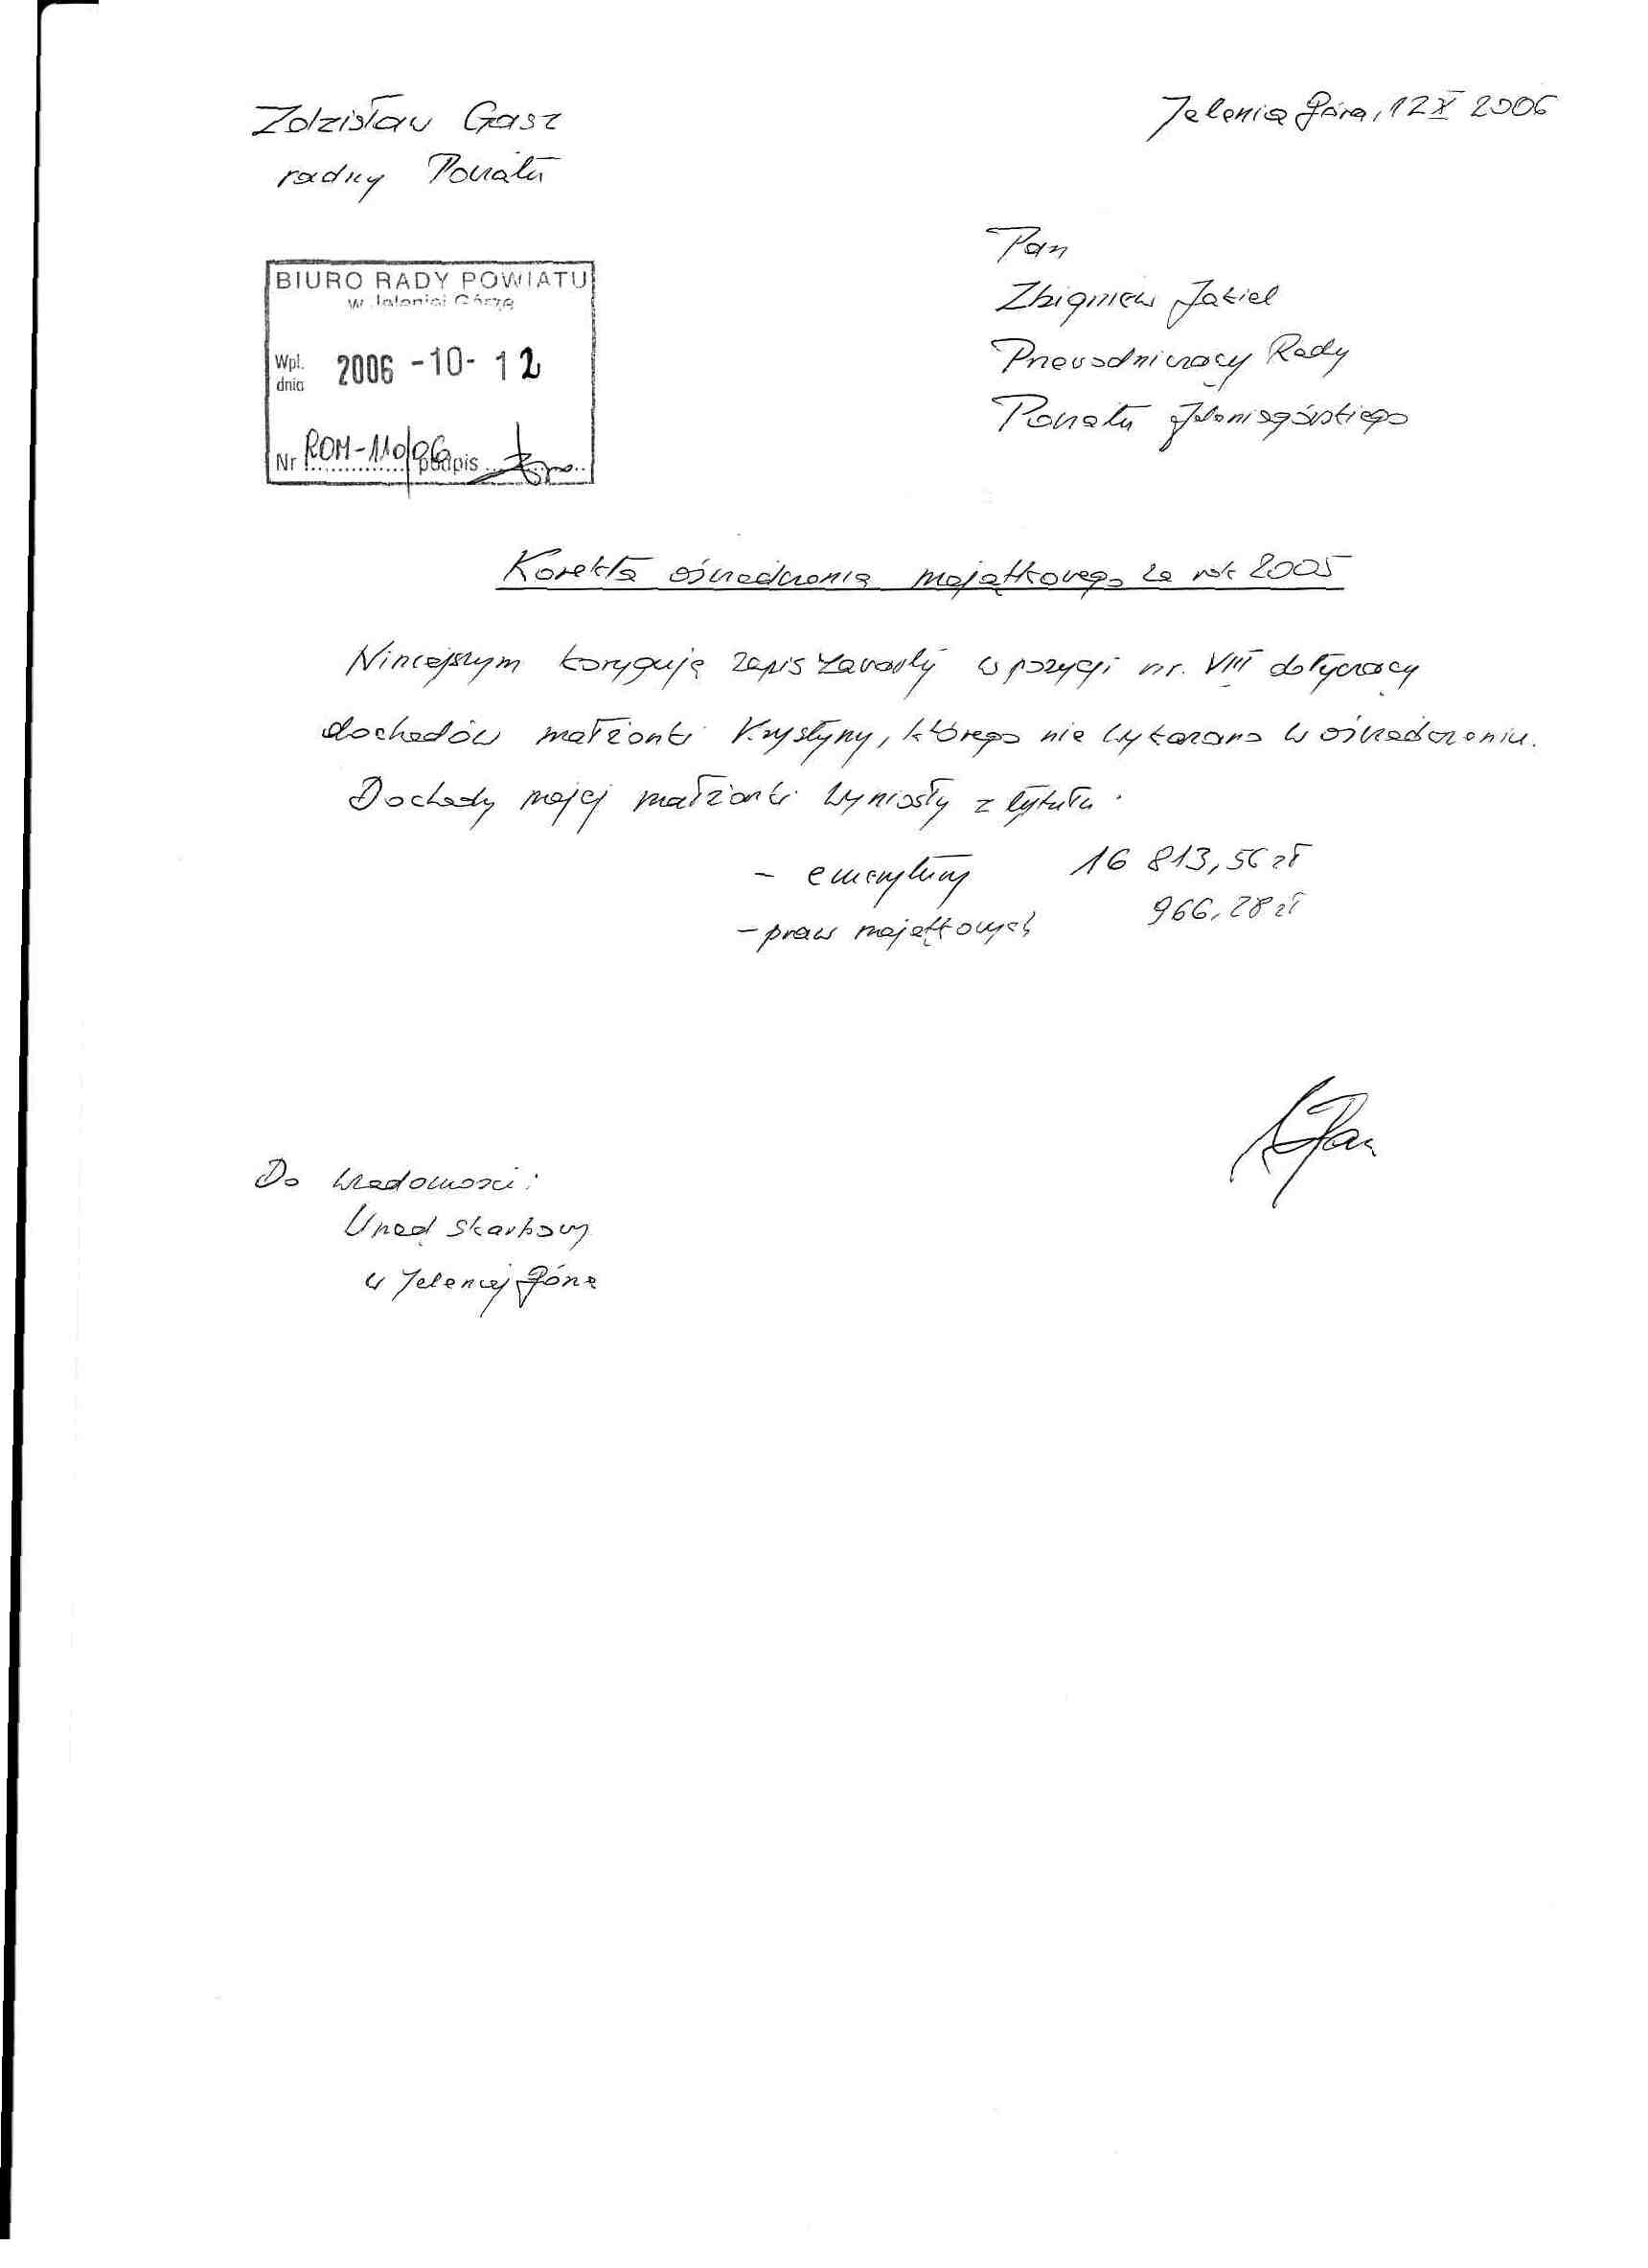 Zdzisław Gasz
radny Powiatu
Jelenia Góra, 12 X 2006
BIURO RADY POWIATU
w Jeleniej Górze
Wpł. dnia 2006 -10- 12
Nr ROM-110/06 podpis
Pan
Zbigniew Jakiel
Przewodniczący Rady
Powiatu Jeleniogórskiego
Korekta oświadczenia majątkowego za rok 2005
Niniejszym koryguję zapis zawarty w pozycji nr. VIII dotyczący
dochodów małżonki Krystyny, którego nie wykazano w oświadczeniu.
Dochody mojej małżonki wyniosły z tytułu:
- emerytury 16 813,56 zł
- praw majątkowych 966,28 zł
Do wiadomości:
Urząd Skarbowy
w Jeleniej Górze